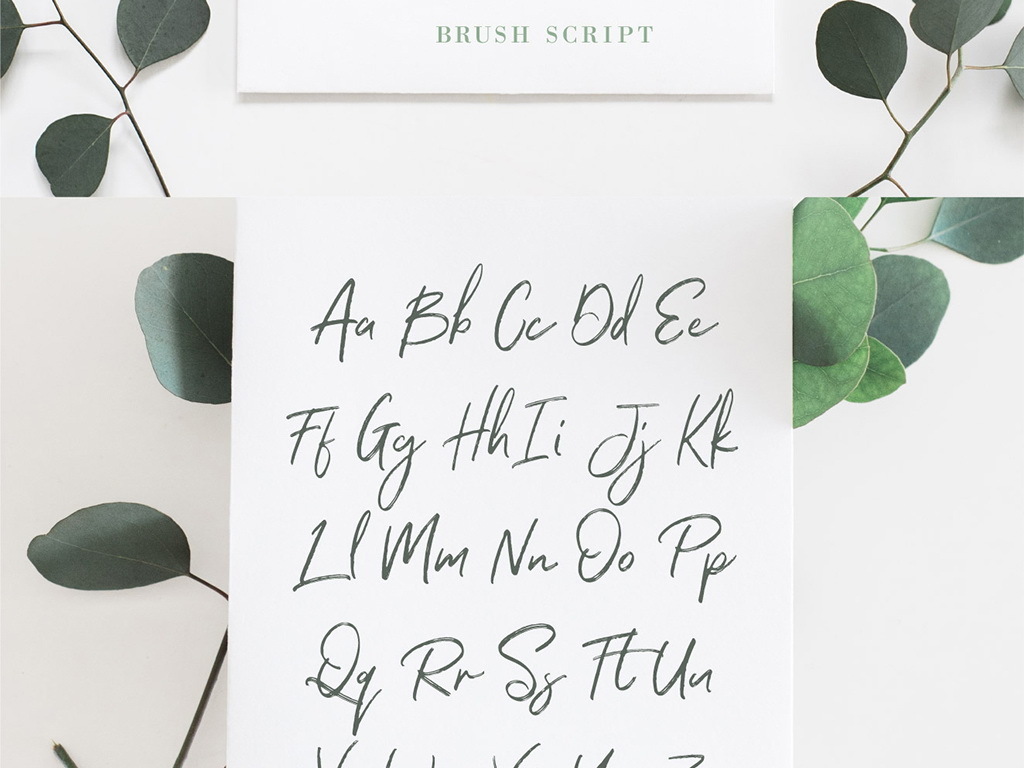 BRUSH SCRIPT
Aa Bb Cc Dd Ee
Ff Gg Hh Ii Jj Kk
Ll Mm Nn Oo Pp
Qq Rr Ss Tt Uu